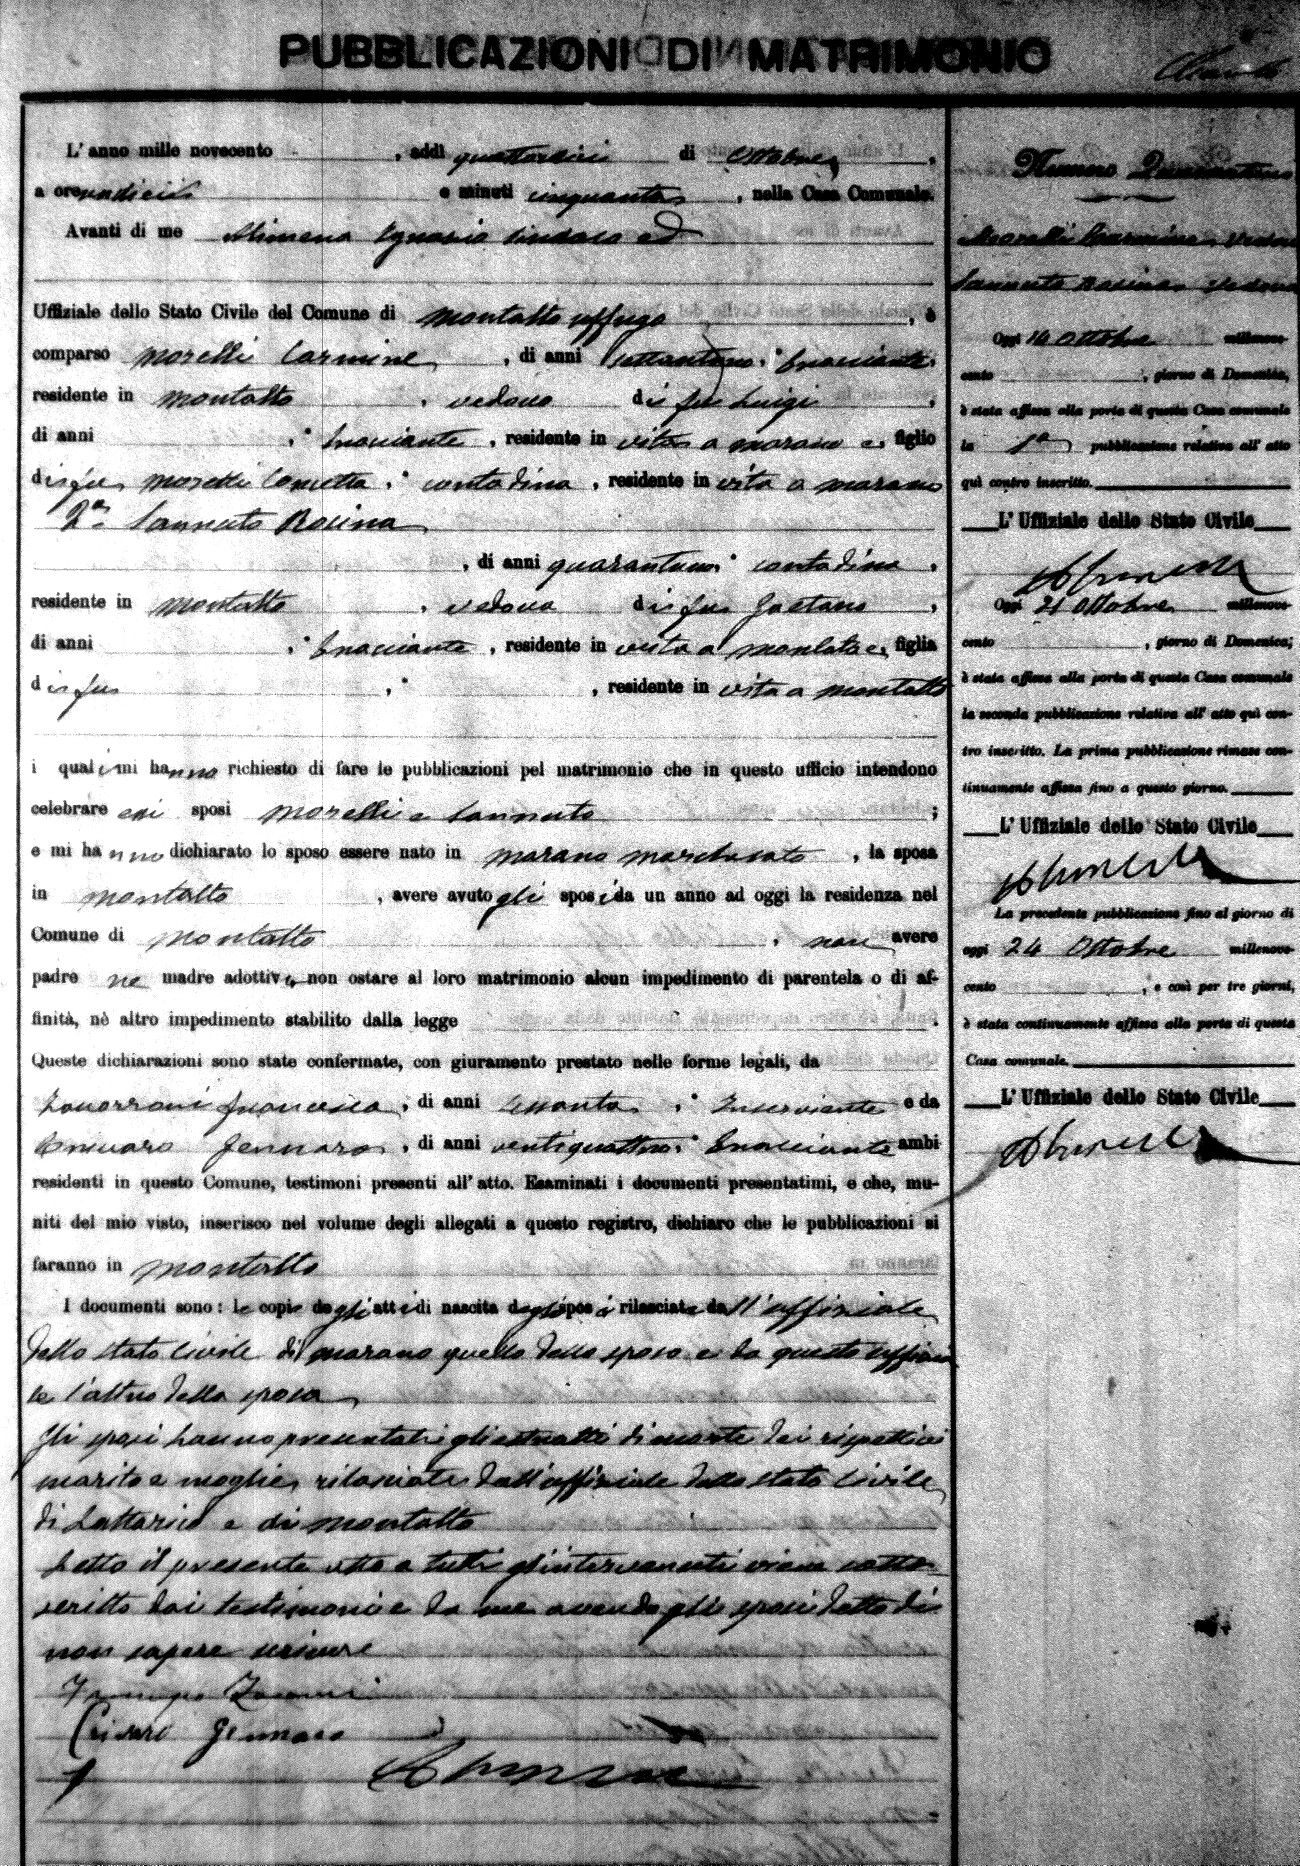 PUBBLICAZIONI DI MATRIMONIO
L'anno mille novecento , addì quattordici di Ottobre,
a ore undici e minuti cinquanta, nella Casa Comunale.
Avanti di me Alimena Ignazio Sindaco ed
Uffiziale dello Stato Civile del Comune di Montalto Uffugo, è
comparso Morelli Carmine, di anni , bracciante
residente in Montalto, vedovo di fu Luigi,
di anni , bracciante, residente in vita a Marano e, figlio
di fu Morelli , contadina, residente in vita a Marano
2a Sannuto Rosina
, di anni quarantuno, contadina,
residente in Montalto, vedova di fu Gaetano,
di anni , bracciante, residente in vita a Montalto e, figlia
di fu , , residente in vita a Montalto
i quali mi hanno richiesto di fare le pubblicazioni pel matrimonio che in questo ufficio intendono
celebrare essi sposi Morelli e Sannuto;
e mi hanno dichiarato lo sposo essere nato in Marano Marchesato, la sposa
in Montalto, avere avuto gli sposi da un anno ad oggi la residenza nel
Comune di Montalto, non avere
padre ne madre adottivi, non ostare al loro matrimonio alcun impedimento di parentela o di af-
finità, nè altro impedimento stabilito dalla legge .
Queste dichiarazioni sono state confermate, con giuramento prestato nelle forme legali, da
Francesco, di anni sessanta, Inserviente e da
Gennaro, di anni ventiquattro, bracciante ambi
residenti in questo Comune, testimoni presenti all'atto. Esaminati i documenti presentatimi, e che, mu-
niti del mio visto, inserisco nel volume degli allegati a questo registro, dichiaro che le pubblicazioni si
faranno in Montalto
I documenti sono: le copie degli atti di nascita degli sposi rilasciate dall'uffiziale
dello stato civile di Marano quello dello sposo e da questo uffizia
le l'altro della sposa
Gli sposi hanno presentati gli estratti di morte dei rispettivi
marito e moglie rilasciate dall'uffiziale dello stato civile
di Lattarico e di Montalto
Letto il presente atto a tutti gl'intervenuti viene sotto
scritto dai testimoni e da me avendo gli sposi detto di
non sapere scrivere
Gennaro
Numero
Morelli Carmine vedovo
Sannuto Rosina vedova
Oggi 14 Ottobre millenove-
cento , giorno di Domenica,
è stata affissa alla porta di questa Casa comunale
la 1a pubblicazione relativa all'atto
quì contro inscritto.
L'Uffiziale dello Stato Civile
Oggi 21 Ottobre millenove-
cento , giorno di Domenica;
è stata affissa alla porta di questa Casa comunale
la seconda pubblicazione relativa all'atto quì con-
tro inscritto. La prima pubblicazione rimase con-
tinuamente affissa fino a questo giorno.
L'Uffiziale dello Stato Civile
La precedente pubblicazione fino al giorno di
oggi 24 Ottobre millenove-
cento , e così per tre giorni,
è stata continuamente affissa alla porta di questa
Casa comunale.
L'Uffiziale dello Stato Civile